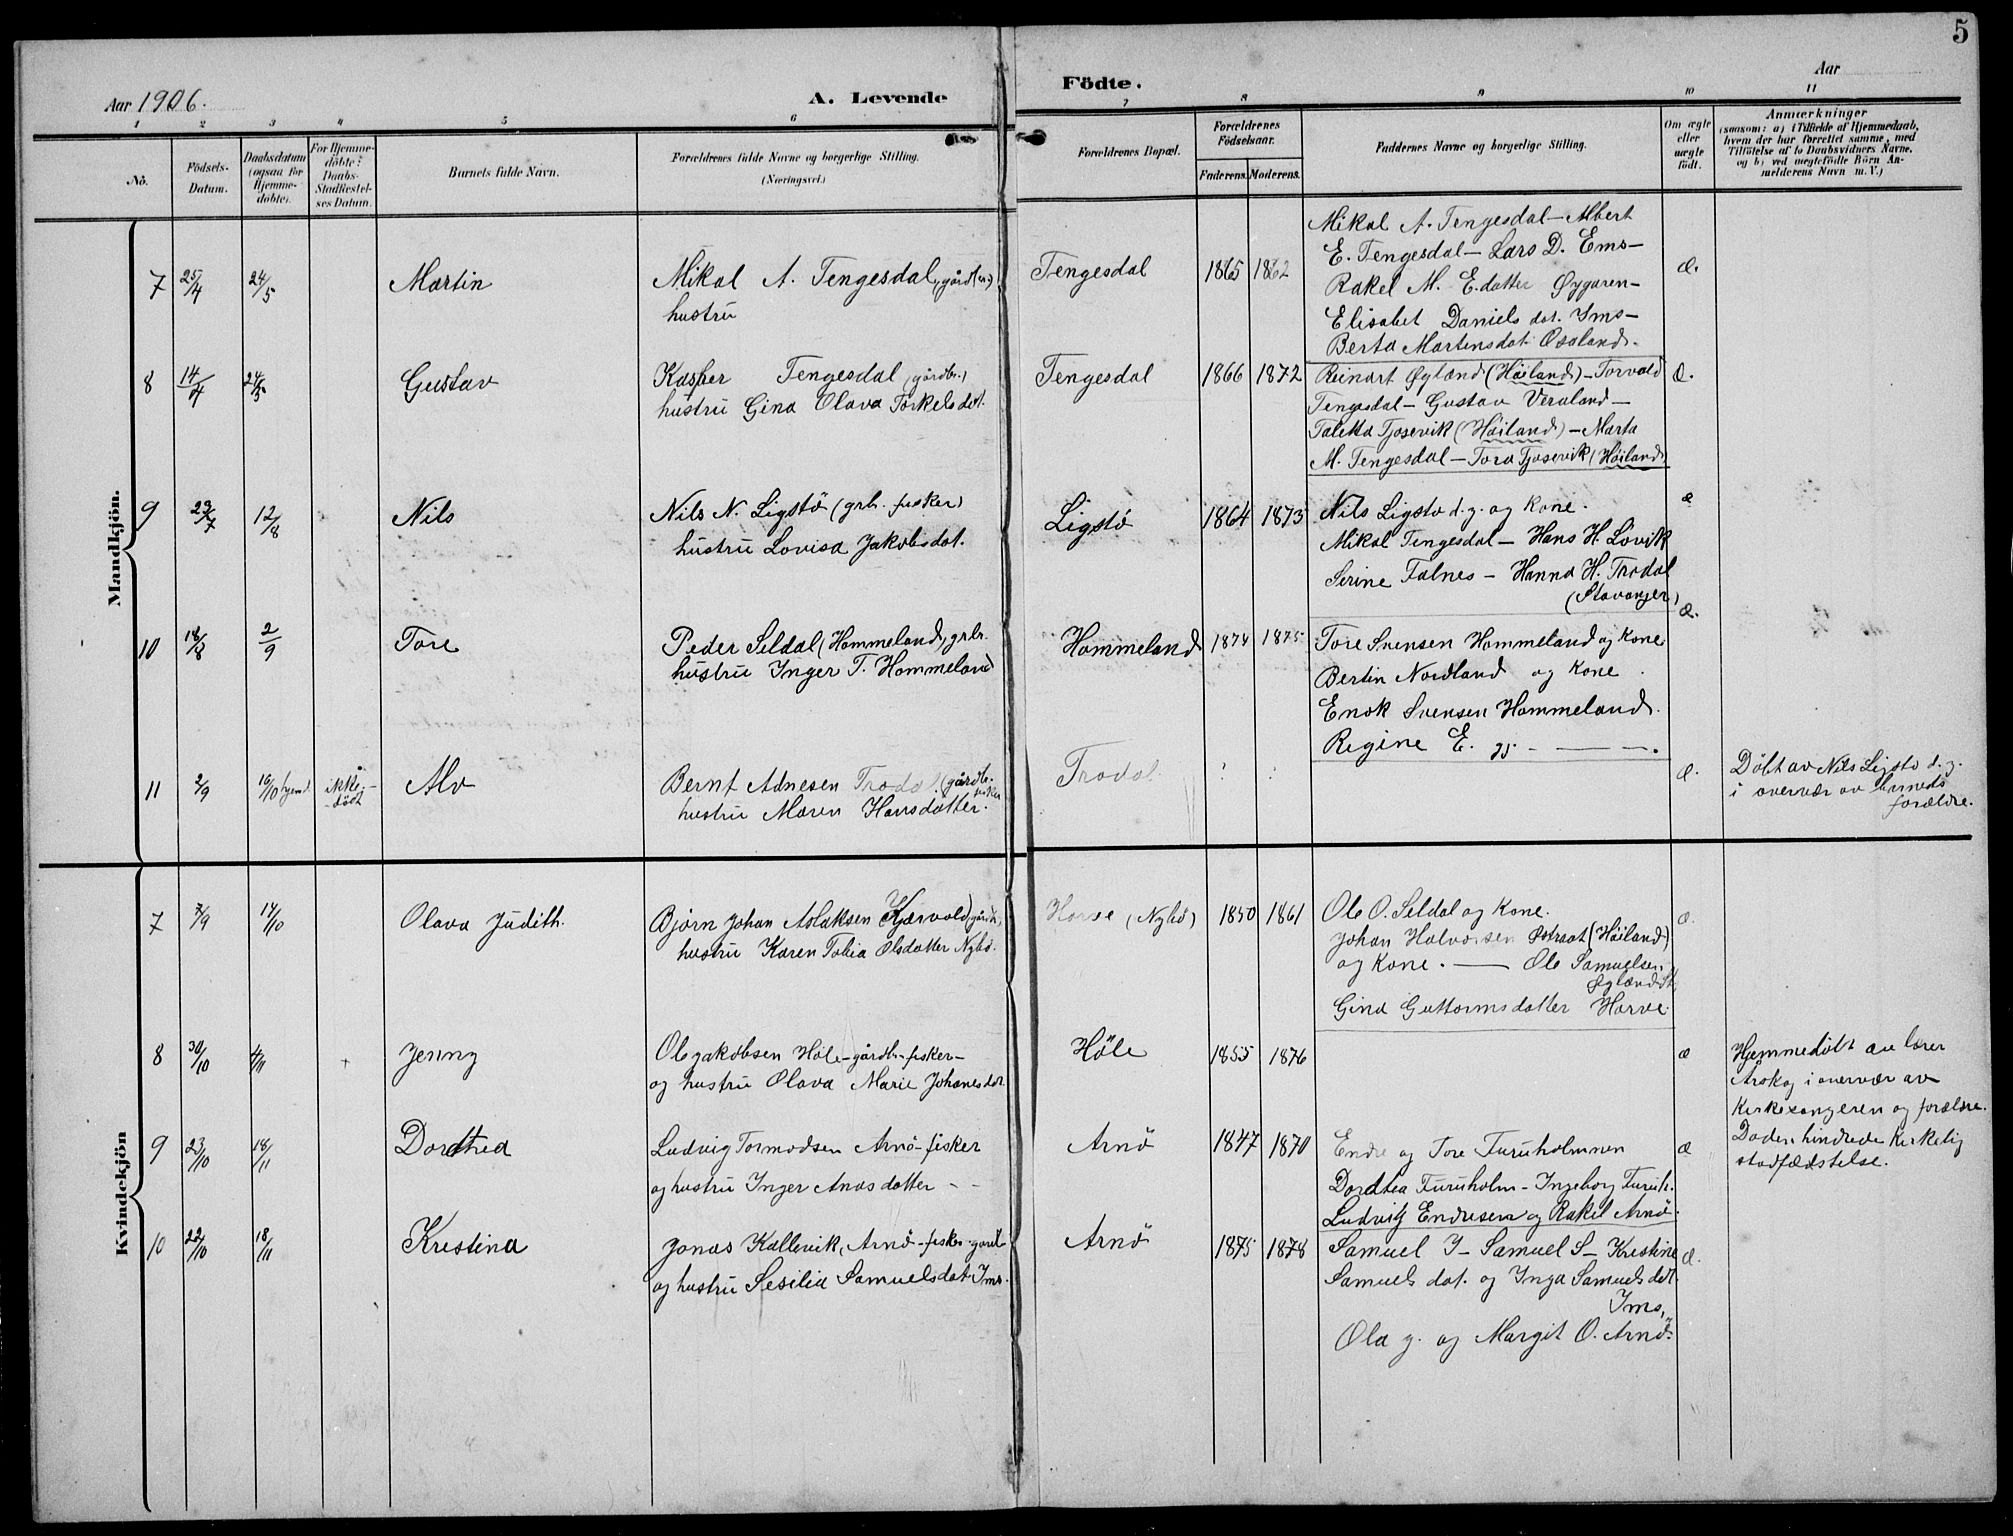 5
Aar 1906.
A. Levende Födte.
Aar
1 2 3 4 5 6 7 8 9 10 11
No.
Födsels-Datum.
Daabsdatum (ogsaa for Hjemme-döbte).
For Hjemme-döbte: Daabs-Stadfæstel-ses Datum.
Barnets fulde Navn.
Forældrenes fulde Navne og borgerlige Stilling.
(Næringsvei.)
Forældrenes Bopæl.
Forældrenes Födselsaar.
Faderens. Moderens.
Faddernes Navne og borgerlige Stilling.
Om ægte eller uægte födt.
Anmærkninger
(saasom: a) i Tilfælde af Hjemmedaab,
hvem der har forrettet samme, med
Tilföielse af to Daabsvidners Navne,
og b) ved uægtefödte Börn An-
melderens Navn m. V.)
Mandkjön.
7 25/4 24/5 Martin
Mikal A. Tengesdal (gårdbr.)
hustru
Tengesdal 1865 1862
Mikal A. Tengesdal — Albert
E. Tengesdal — Lars D. Ems —
Rakel M. E.datter Øygaren —
Elisabet Daniels dat. Ims —
Berta Martensdat. Osaland.
æ.
8 14/4 24/5 Gustav
Kasper Tengesdal (gårdbr.)
hustru Gina Olava Torkelsdat.
Tengesdal 1866 1872
Reinart Øgland (Høiland) — Torvald
Tengesdal — Gustav Veraland —
Taletta Tjosevik (Høiland) — Marta
M. Tengesdal — Tora Tjosevik (Høiland)
æ.
9 12/8 Nils
Nils N. Ligstö (grb. fisker)
hustru Lovisa Jakobsdat.
Ligstö 1864 1873
Nils Ligstö d.y. og kone.
Mikal Tengesdal — Hans H. Lövik
Serine Falnes — Hanna H. Trodal
(Stavanger)
æ
10 18/8 2/9 Tore
Peder Seldal (Hommeland) grbr.
hustru Inger T. Hommeland
Hommeland 1874 1875
Tore Svensen Hommeland og kone
Bertin Nordland og kone.
Enok Svensen Hommeland.
Regine E.
æ.
11 2/9 16/10 hjemd. ikke, död Alv
Bernt Adnesen Trodal (gårdbr. fisker
hustru Maren Hansdatter.
Trodal
æ.
Döbt av Nils Ligstö d.y.
i overvær av barnets
forældre.
Kvindekjön
7 7/9 14/10 Olava Judith.
Björn Johan Aslaksen Kjærvold, gårdb.,
hustru Karen Tobia Olsdatter Nybö.
Horve (Nybö) 1850 1861
Ole O. Seldal og kone.
Johan Halvorsen Østraat (Høiland)
og kone. — Ole Samuelsen
Gina Guttormsdatter Horve.
æ.
8 30/10 4/11 Jenny
Ole Jakobsen Høle - gårdb.- fisker -
og hustru Olava Marie Johanesdat.
Høle 1855 1876
æ
Hjemmedöbt av lærer
Arskog i overvær av
kirkesangeren og forældre.
Döden hindrede kirkelig
stadfæstelse.
9 23/10 18/11 Dordthea
Ludvig Tormodsen Arnö - fisker
og hustru Inger Anasdatter - -
Arnö 1847 1870
Endre og Tore Furuholmnen
Dordtea Furuholm - Ingeborg Furuh.
Ludvig Endresen og Rakel Arnö.
æ
10 22/10 18/11 Kristina
Jonas Kallevik, Arnö - fisker - gardb
og hustru Sesilia Samuelsdat. Ims.
Arnö 1875 1878
Samuel J — Samuel S — Kristine
Samuels dat. og Inga Samuelsdat.
Ims.
Ola J. og Margit O. Arnö.
æ.